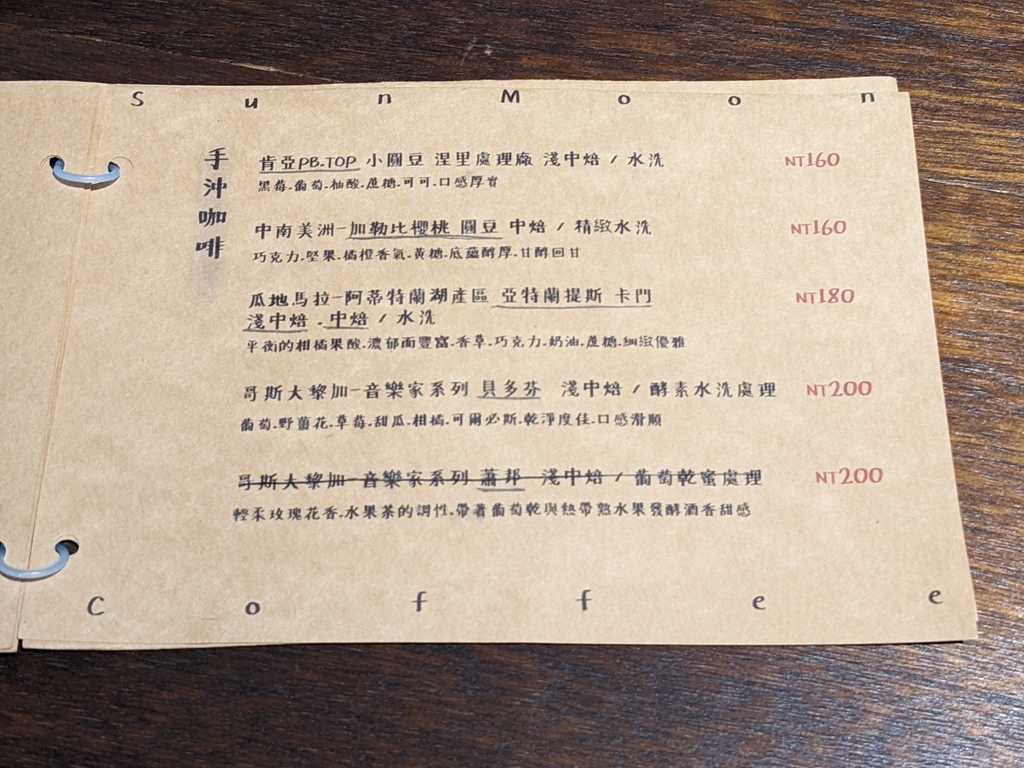 SunMoon
手沖咖啡
肯亞PB.TOP 小圓豆 涅里處理廠 淺中焙 / 水洗 NT160
黑莓.葡萄.柚酸.蔗糖.可可.口感厚實
中南美洲-加勒比櫻桃 圓豆 中焙 / 精緻水洗 NT160
巧克力.堅果.橘橙香氣.黃糖.底蘊醇厚.甘醇回甘
瓜地馬拉-阿蒂特蘭湖產區 亞特蘭提斯 卡門 NT180
淺中焙 . 中焙 / 水洗
平衡的柑橘果酸.濃郁而豐富.香草.巧克力.奶油.蔗糖.細緻優雅
哥斯大黎加-音樂家系列 貝多芬 淺中焙 / 酵素水洗處理 NT200
葡萄.野薑花.草莓.甜瓜.柑橘.可爾必斯.乾淨度佳.口感滑順
哥斯大黎加-音樂家系列 蕭邦 淺中焙 / 葡萄乾蜜處理 NT200
輕柔玫瑰花香.水果茶的調性.帶著葡萄乾與熱帶熟水果發酵酒香甜感
Coffee